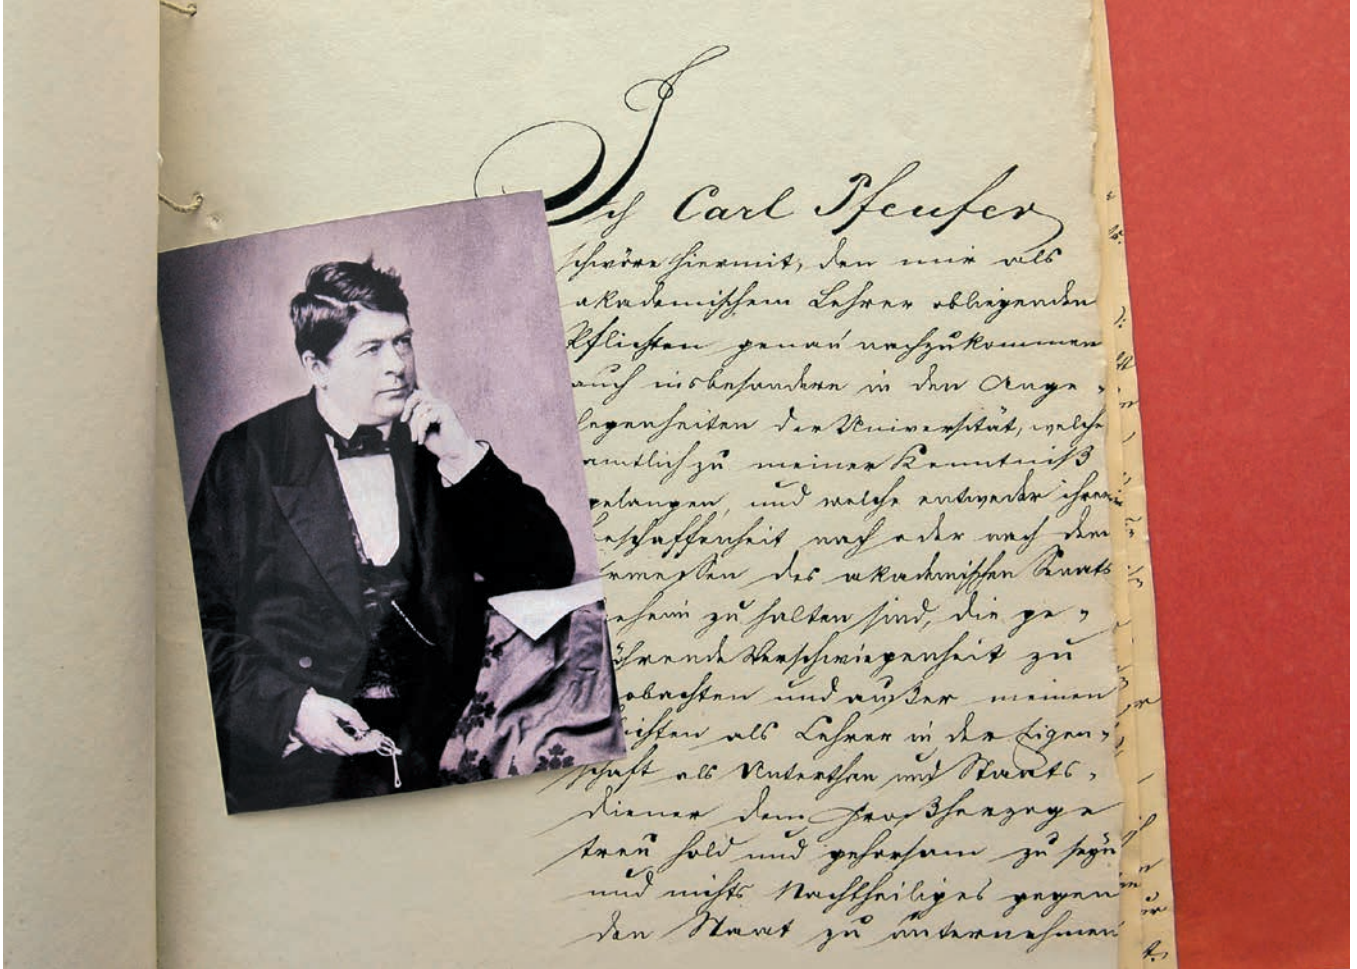 Ich Carl Pfeufer
schwöre hiermit, den mir als
akademischem Lehrer obliegenden
Pflichten genau nachzukommen
auch insbesondere in den Ange-
legenheiten der Universität, welche
amtlich zu meiner Kenntniß
gelangen, und welche entweder ihrer
eschaffenheit nach oder nach dem
rmessen des akademischen Senats
eheim zu halten sind, die ge-
ührende Verschwiegenheit zu
obachten und außer meinen
ichten als Lehrer in der Eigen-
schaft als Unterthan und Staats-
diener dem Großherzoge
treu hold und gehorsam zu seyn
und nichts Nachtheiliges gegen
den Staat zu unternehmen